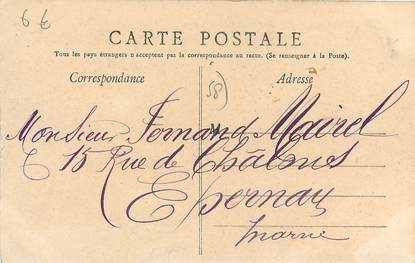 6 €
CARTE POSTALE
Tous les pays étrangers n'acceptent pas la correspondance au recto. (Se renseigner à la Poste).
Correspondance
Adresse
58)
Monsieur Fernand Mairel
15 Rue de Châlons
Epernay
Marne